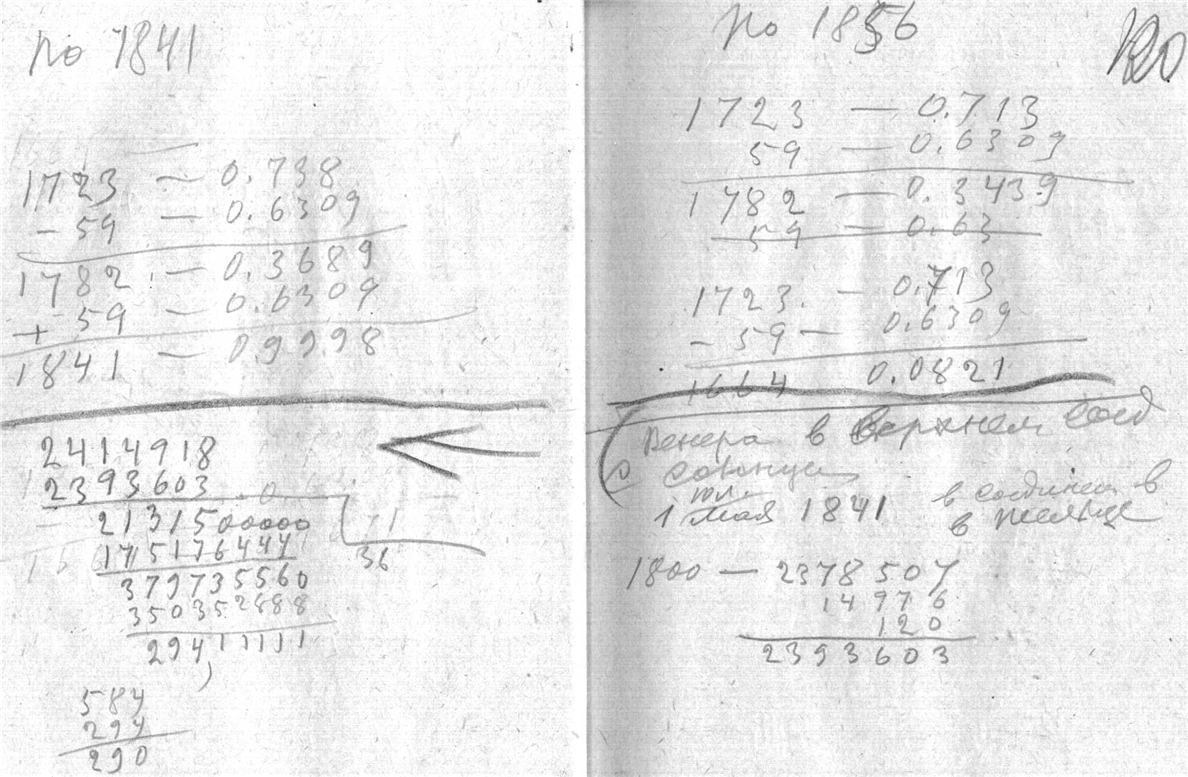 по 1841
1723 — 0.738
- 59 — 0.6309
1782 — 0.3689
+ 59 — 0.6309
1841 — 0.9998
2414918
2393603.0
2131500000
1715176444
36
379735560
350352888
29411111
584
294
290
по 1856
1723 — 0.713
59 — 0.6309
1782 — 0.3439
59 — 0.63
1723 — 0.713
- 59 — 0.6309
1664 0.0821
Венера в верхнем соед
с солнцем
1 мая 1841
в соединен в
в тельце
1800 — 2378507
14976
120
2393603